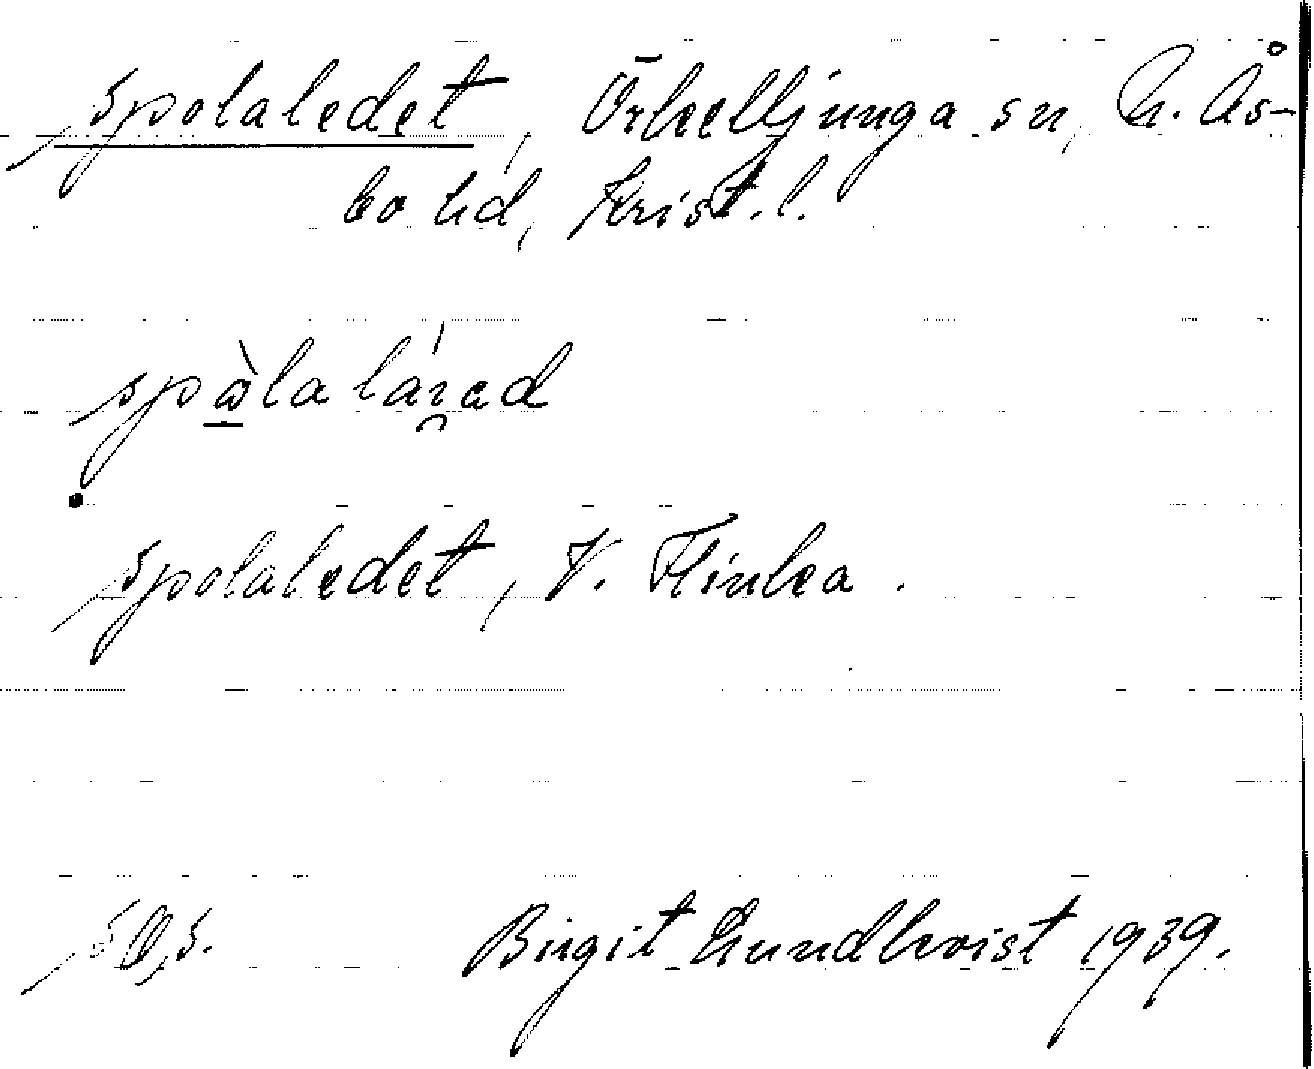 spolaledet, Örkelljunga sn, N. Ås-
bo hd, Krist. l.
spolaledet, V. Flinka.
Birgit Lundkvist 1939.